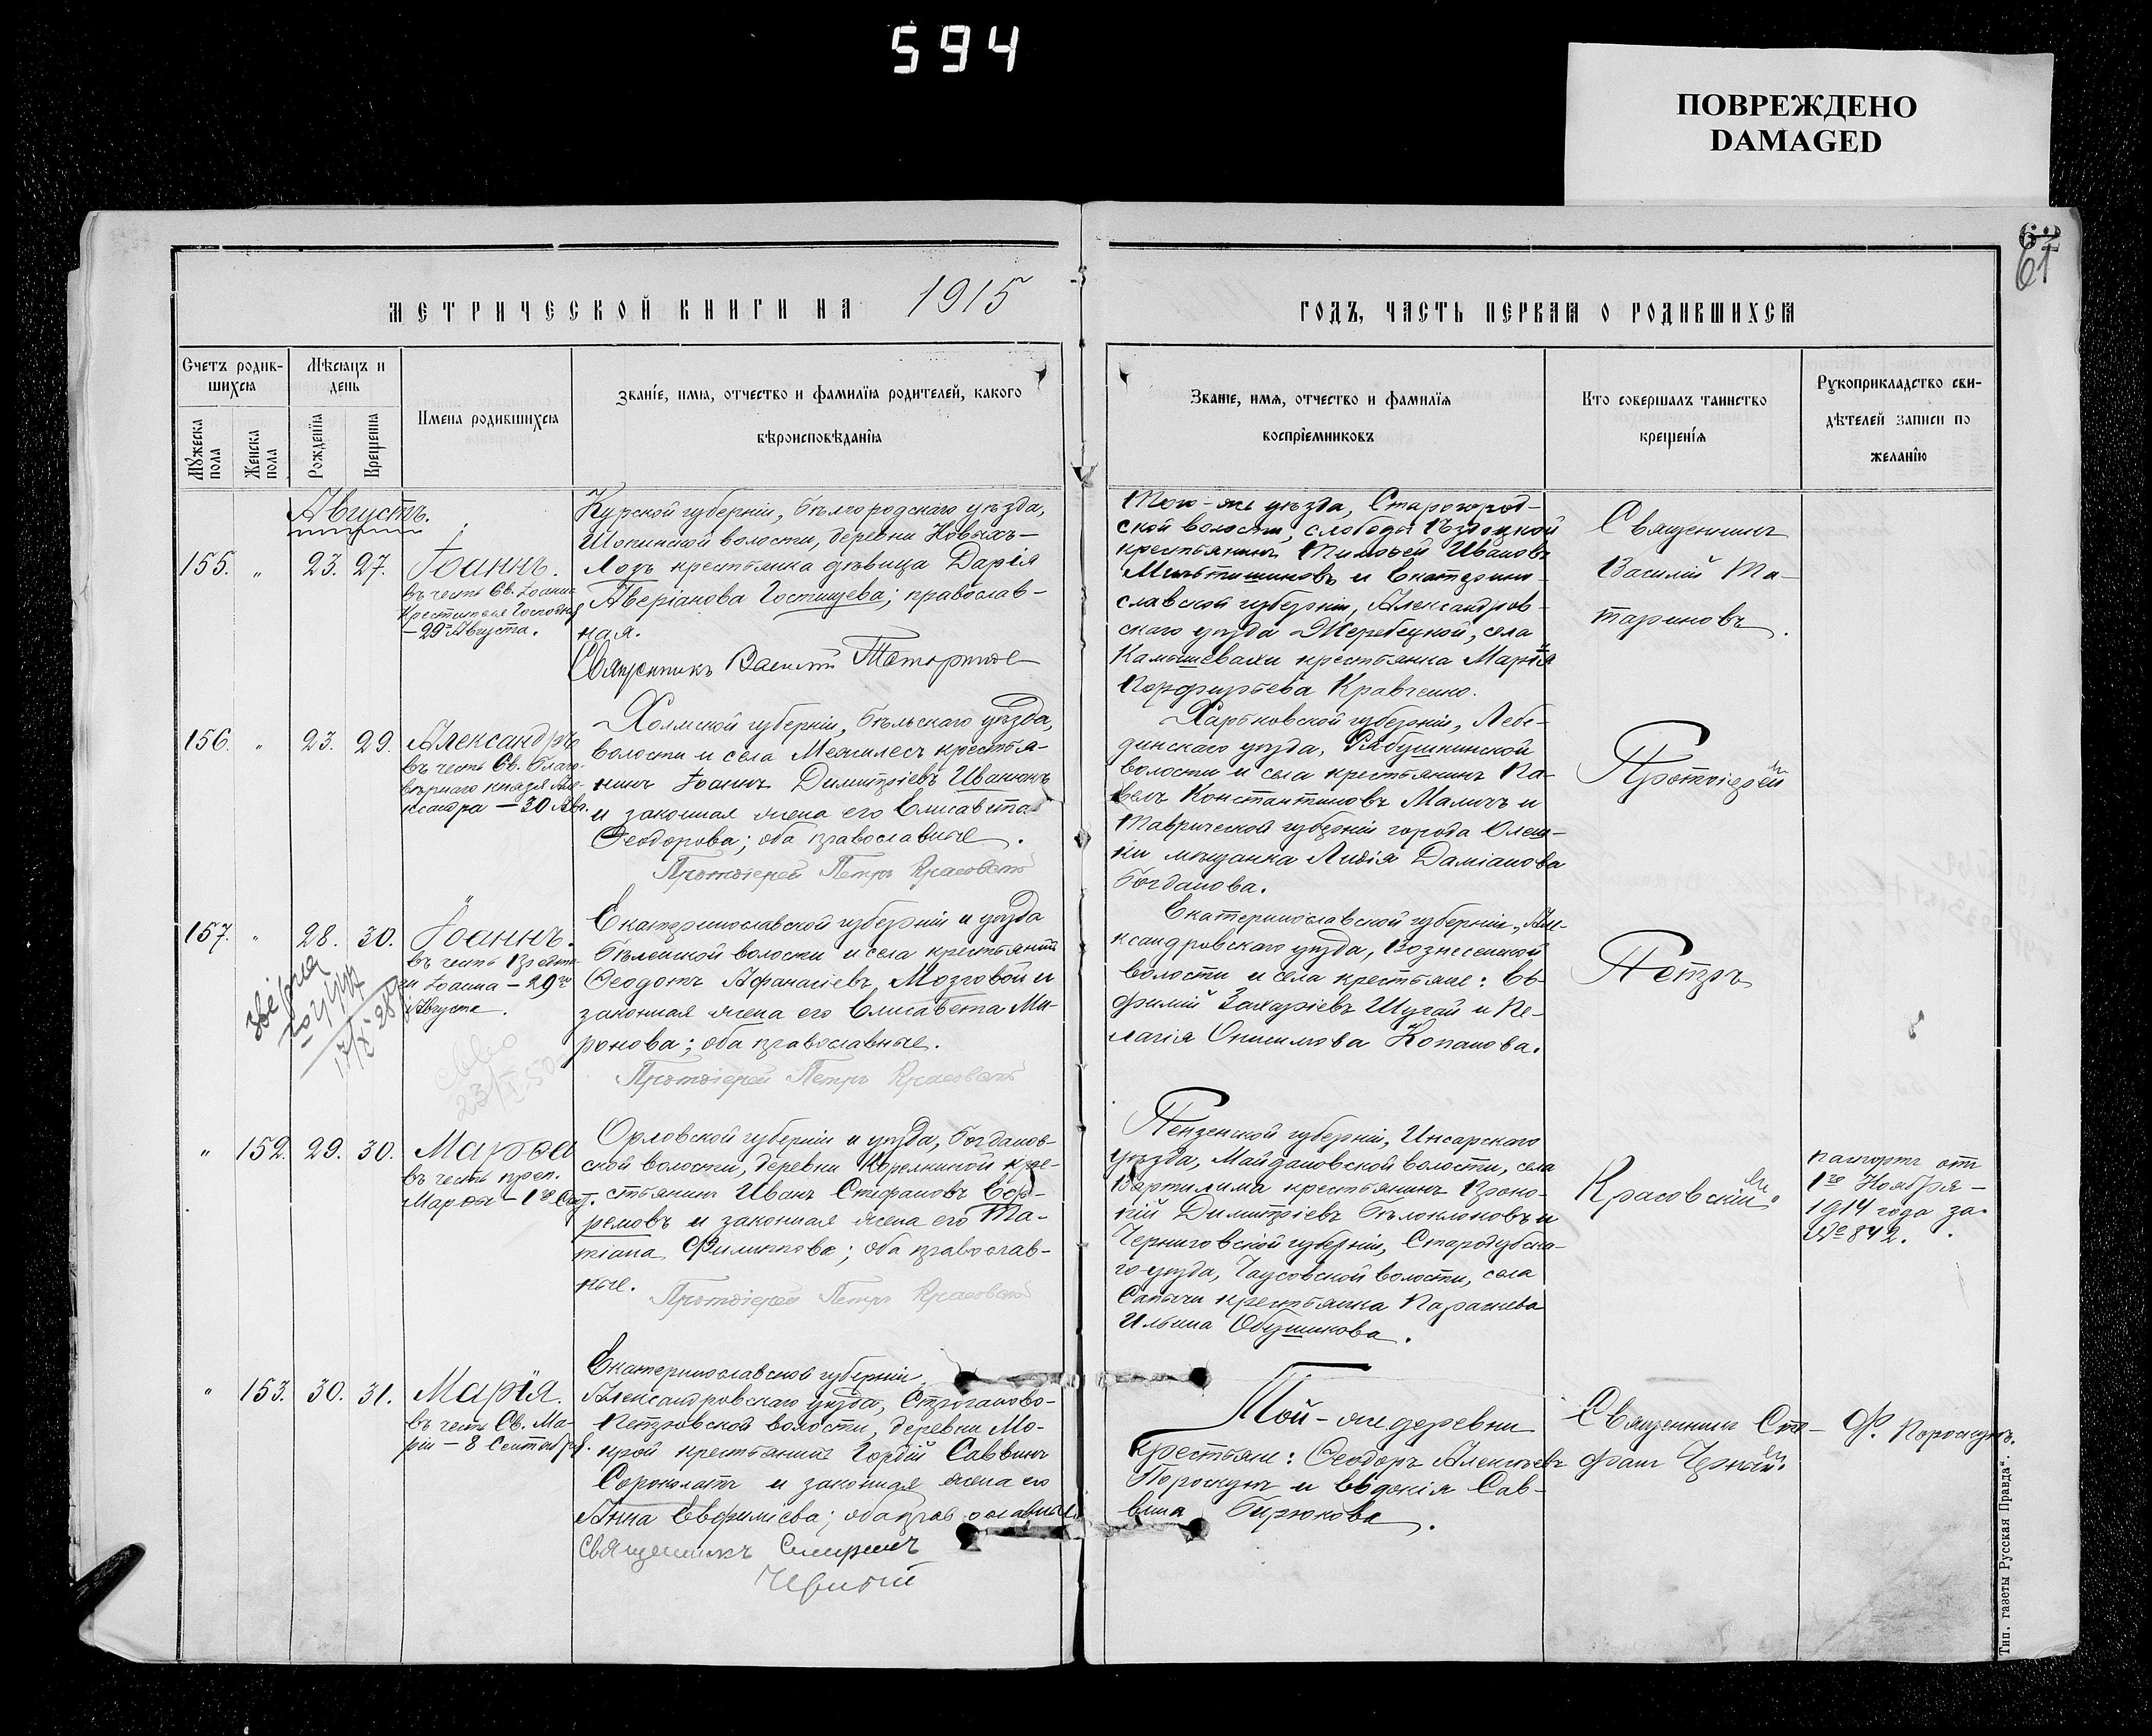 594
ПОВРЕЖДЕНО
DAMAGED
62
61
МЕТРИЧЕСКОЙ КНИГИ НА 1915
ГОДЪ, ЧАСТЬ ПЕРВАЯ О РОДИВШИХСЯ
Счетъ родив-
шихся
Мѣсяцъ и
день
Мужеска
пола
Женска
пола
Рожденія
Крещенія
Имена родившихся
Званіе, имя, отчество и фамилія родителей, какого
вѣроисповѣданія
Званіе, имя, отчество и фамилія
воспріемниковъ
Кто совершалъ таинство
крещенія
Рукоприкладство сви-
дѣтелей записи по
желанію
Августъ.
155. „ 23. 27. Іоаннъ.
въ честь Св. Іоанна
Крестителя Господня
— 29го Августа.
Курской губерніи, Бѣлгородскаго уѣзда,
Шопинской волости, деревни Новыхъ-
Лозъ крестьянка дѣвица Дарія
Аверіанова Гостищева; православ-
ная.
Священникъ Василій Татариновъ
Того-же уѣзда, Старогород-
ской волости, слободы Ѣздоцкой
крестьянинъ Тимоѳей Ивановъ
и Екатерино-
славской губерніи, Александров-
скаго уѣзда Жеребецкой, села
Камышевахи крестьянка Марія
Порфирьева Кравченко.
Священникъ
Василій Та-
тариновъ.
156. „ 23. 29. Александръ
въ честь Св. Благо-
вѣрнаго князя Але-
ксандра — 30 Авг.
Холмской губерніи, Бѣльскаго уѣзда,
волости и села Межилесъ крестья-
нинъ Іоаннъ Димитріевъ Иванюкъ
и законная жена его Елисавета
Ѳеодорова; оба православные.
Протоіерей Петръ Красовскій
Харьковской губерніи, Лебе-
динскаго уѣзда, Рябушкинской
волости и села крестьянинъ Па-
велъ Константиновъ Маличъ и
Таврической губерніи города Олеш-
ки мѣщанка Лидія Даміанова
Богданова.
Протоіерей
157. „ 28. 30. Іоаннъ.
въ честь Предте-
чи Іоанна — 29го
Августа.
17/X 28
23/X 50
Екатеринославской губерніи и уѣзда
Бѣленкой волости и села крестьянинъ
Ѳеодотъ Афанасіевъ Мозговой и
законная жена его Елисавета Ми-
ронова; оба православные.
Протоіерей Петръ Красовскій
Екатеринославской губерніи, Але-
ксандровскаго уѣзда, Вознесенской
волости и села крестьяне: Ев-
фимій Захаріевъ Шугай и Пе-
лагія Онисимова Копанова.
Петръ
„ 152. 29. 30. Марѳа
въ честь преп.
Марѳы — 1го Сент.
Орловской губерніи и уѣзда, Богданов-
ской волости, деревни Корелкиной кре-
стьянинъ Иванъ Стефановъ Еф-
ремовъ и законная жена его Та-
тіана Филиппова; оба православ-
ные.
Протоіерей Петръ Красовскій
Пензенской губерніи, Инсарскаго
уѣзда, Майдановской волости, села
Вертилима крестьянинъ Проко-
пій Димитріевъ Бѣлоклоковъ и
Черниговской губерніи, Стародубска-
го уѣзда, Чаусовской волости, села
Сапычи крестьянка Параскева
Ильина Обушикова.
Красовскій.
паспортъ отъ
1го Ноября
1914 года за
№ 842.
„ 153. 30. 31. Марія.
въ честь Св. Ма-
ріи — 8 Сентября.
Екатеринославской губерніи,
Александровскаго уѣзда, Строганово-
Петровской волости, деревни Мо-
крой крестьянинъ Гордій Саввинъ
Сороколатъ и законная жена его
Анна Евфиміева; оба православные
Священникъ Стефанъ
Черный
Той-же деревни
крестьяне: Ѳеодоръ Алексѣевъ
Пороскунъ и Евдокія Сав-
вина Бирюкова.
Священникъ Сте-
фанъ Черный.
Ф. Пороскунъ.
Тип. газеты Русская Правда".